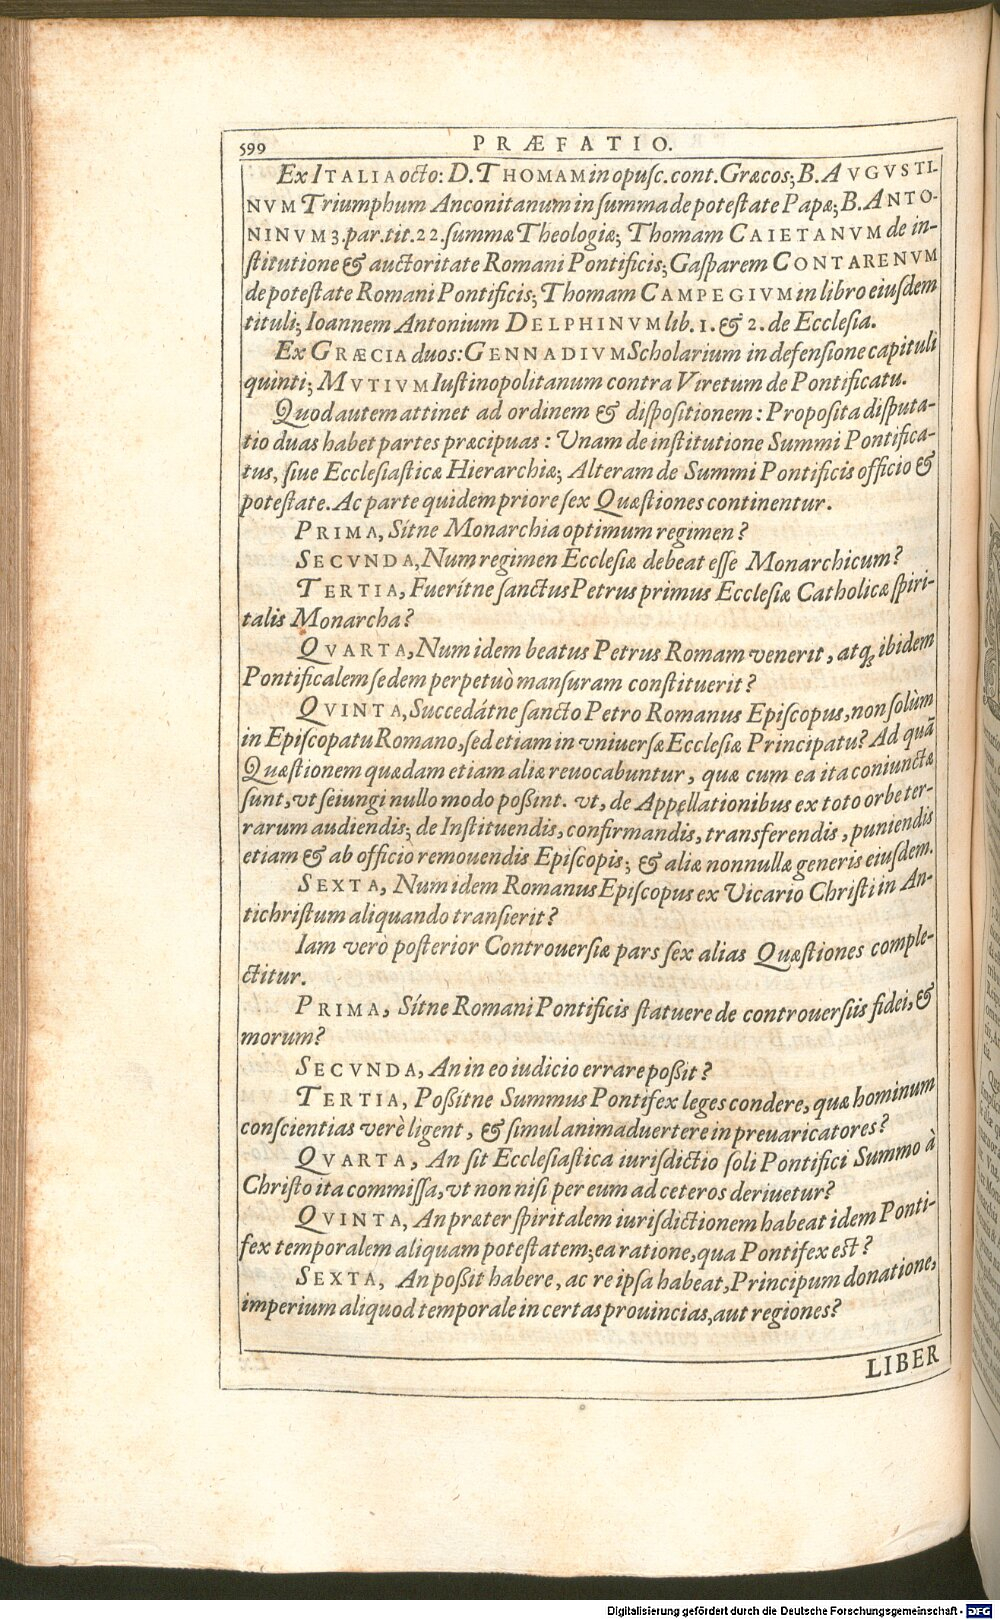 599 PRÆFATIO.
Ex ITALIA octo: D. THOMAM in opuſc. cont. Græcos; B. AVGVSTI-
NVM Triumphum Anconitanum in ſumma de poteſtate Papæ; B. ANTO-
NINVM 3. par. tit. 22. ſummæ Theologiæ; Thomam CAIETANVM de in-
ſtitutione & auctoritate Romani Pontificis; Gaſparem CONTARENVM
de poteſtate Romani Pontificis; Thomam CAMPEGIVM in libro eiuſdem
tituli; Ioannem Antonium DELPHINVM lib. 1. & 2. de Eccleſia.
Ex GRÆCIA duos: GENNADIVM Scholarium in defenſione capituli
quinti; MVTIVM Iuſtinopolitanum contra Viretum de Pontificatu.
Quod autem attinet ad ordinem & diſpoſitionem: Propoſita diſputa-
tio duas habet partes præcipuas: Unam de inſtitutione Summi Pontifica-
tus, ſiue Eccleſiaſticæ Hierarchiæ; Alteram de Summi Pontificis officio &
poteſtate. Ac parte quidem priore ſex Quæſtiones continentur.
PRIMA, Sítne Monarchia optimum regimen?
SECVNDA, Num regimen Eccleſiæ debeat eſſe Monarchicum?
TERTIA, Fuerítne ſanctus Petrus primus Eccleſiæ Catholicæ ſpiri-
talis Monarcha?
QVARTA, Num idem beatus Petrus Romam venerit, atq; ibidem
Pontificalem ſedem perpetuò manſuram conſtituerit?
QVINTA, Succedátne ſancto Petro Romanus Epiſcopus, non ſolùm
in Epiſcopatu Romano, ſed etiam in vniuerſæ Eccleſiæ Principatu? Ad quā
Quæſtionem quædam etiam aliæ reuocabuntur, quæ cum ea ita coniunctæ
ſunt, vt ſeiungi nullo modo poßint. vt, de Appellationibus ex toto orbe ter-
rarum audiendis; de Inſtituendis, confirmandis, transferendis, puniendis
etiam & ab officio remouendis Epiſcopis; & aliæ nonnullæ generis eiuſdem.
SEXTA, Num idem Romanus Epiſcopus ex Vicario Chriſti in An-
tichriſtum aliquando tranſierit?
Iam verò poſterior Controuerſiæ pars ſex alias Quæſtiones comple-
ctitur.
PRIMA, Sítne Romani Pontificis ſtatuere de controuerſiis fidei, &
morum?
SECVNDA, An in eo iudicio errare poßit?
TERTIA, Poßítne Summus Pontifex leges condere, quæ hominum
conſcientias verè ligent, & ſimul animaduertere in preuaricatores?
QVARTA, An ſit Eccleſiaſtica iuriſdictio ſoli Pontifici Summo à
Chriſto ita commiſſa, vt non niſi per eum ad ceteros deriuetur?
QVINTA, An præter ſpiritalem iuriſdictionem habeat idem Ponti-
fex temporalem aliquam poteſtatem; ea ratione, qua Pontifex eſt?
SEXTA, An poßit habere, ac re ipſa habeat, Principum donatione,
imperium aliquod temporale in certas prouincias, aut regiones?
LIBER
Digitalisierung gefördert durch die Deutsche Forschungsgemeinschaft - DFG